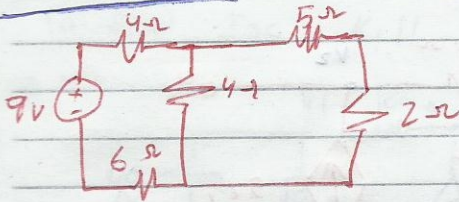 4Ω 5Ω
9V + - 4Ω 2Ω
6Ω